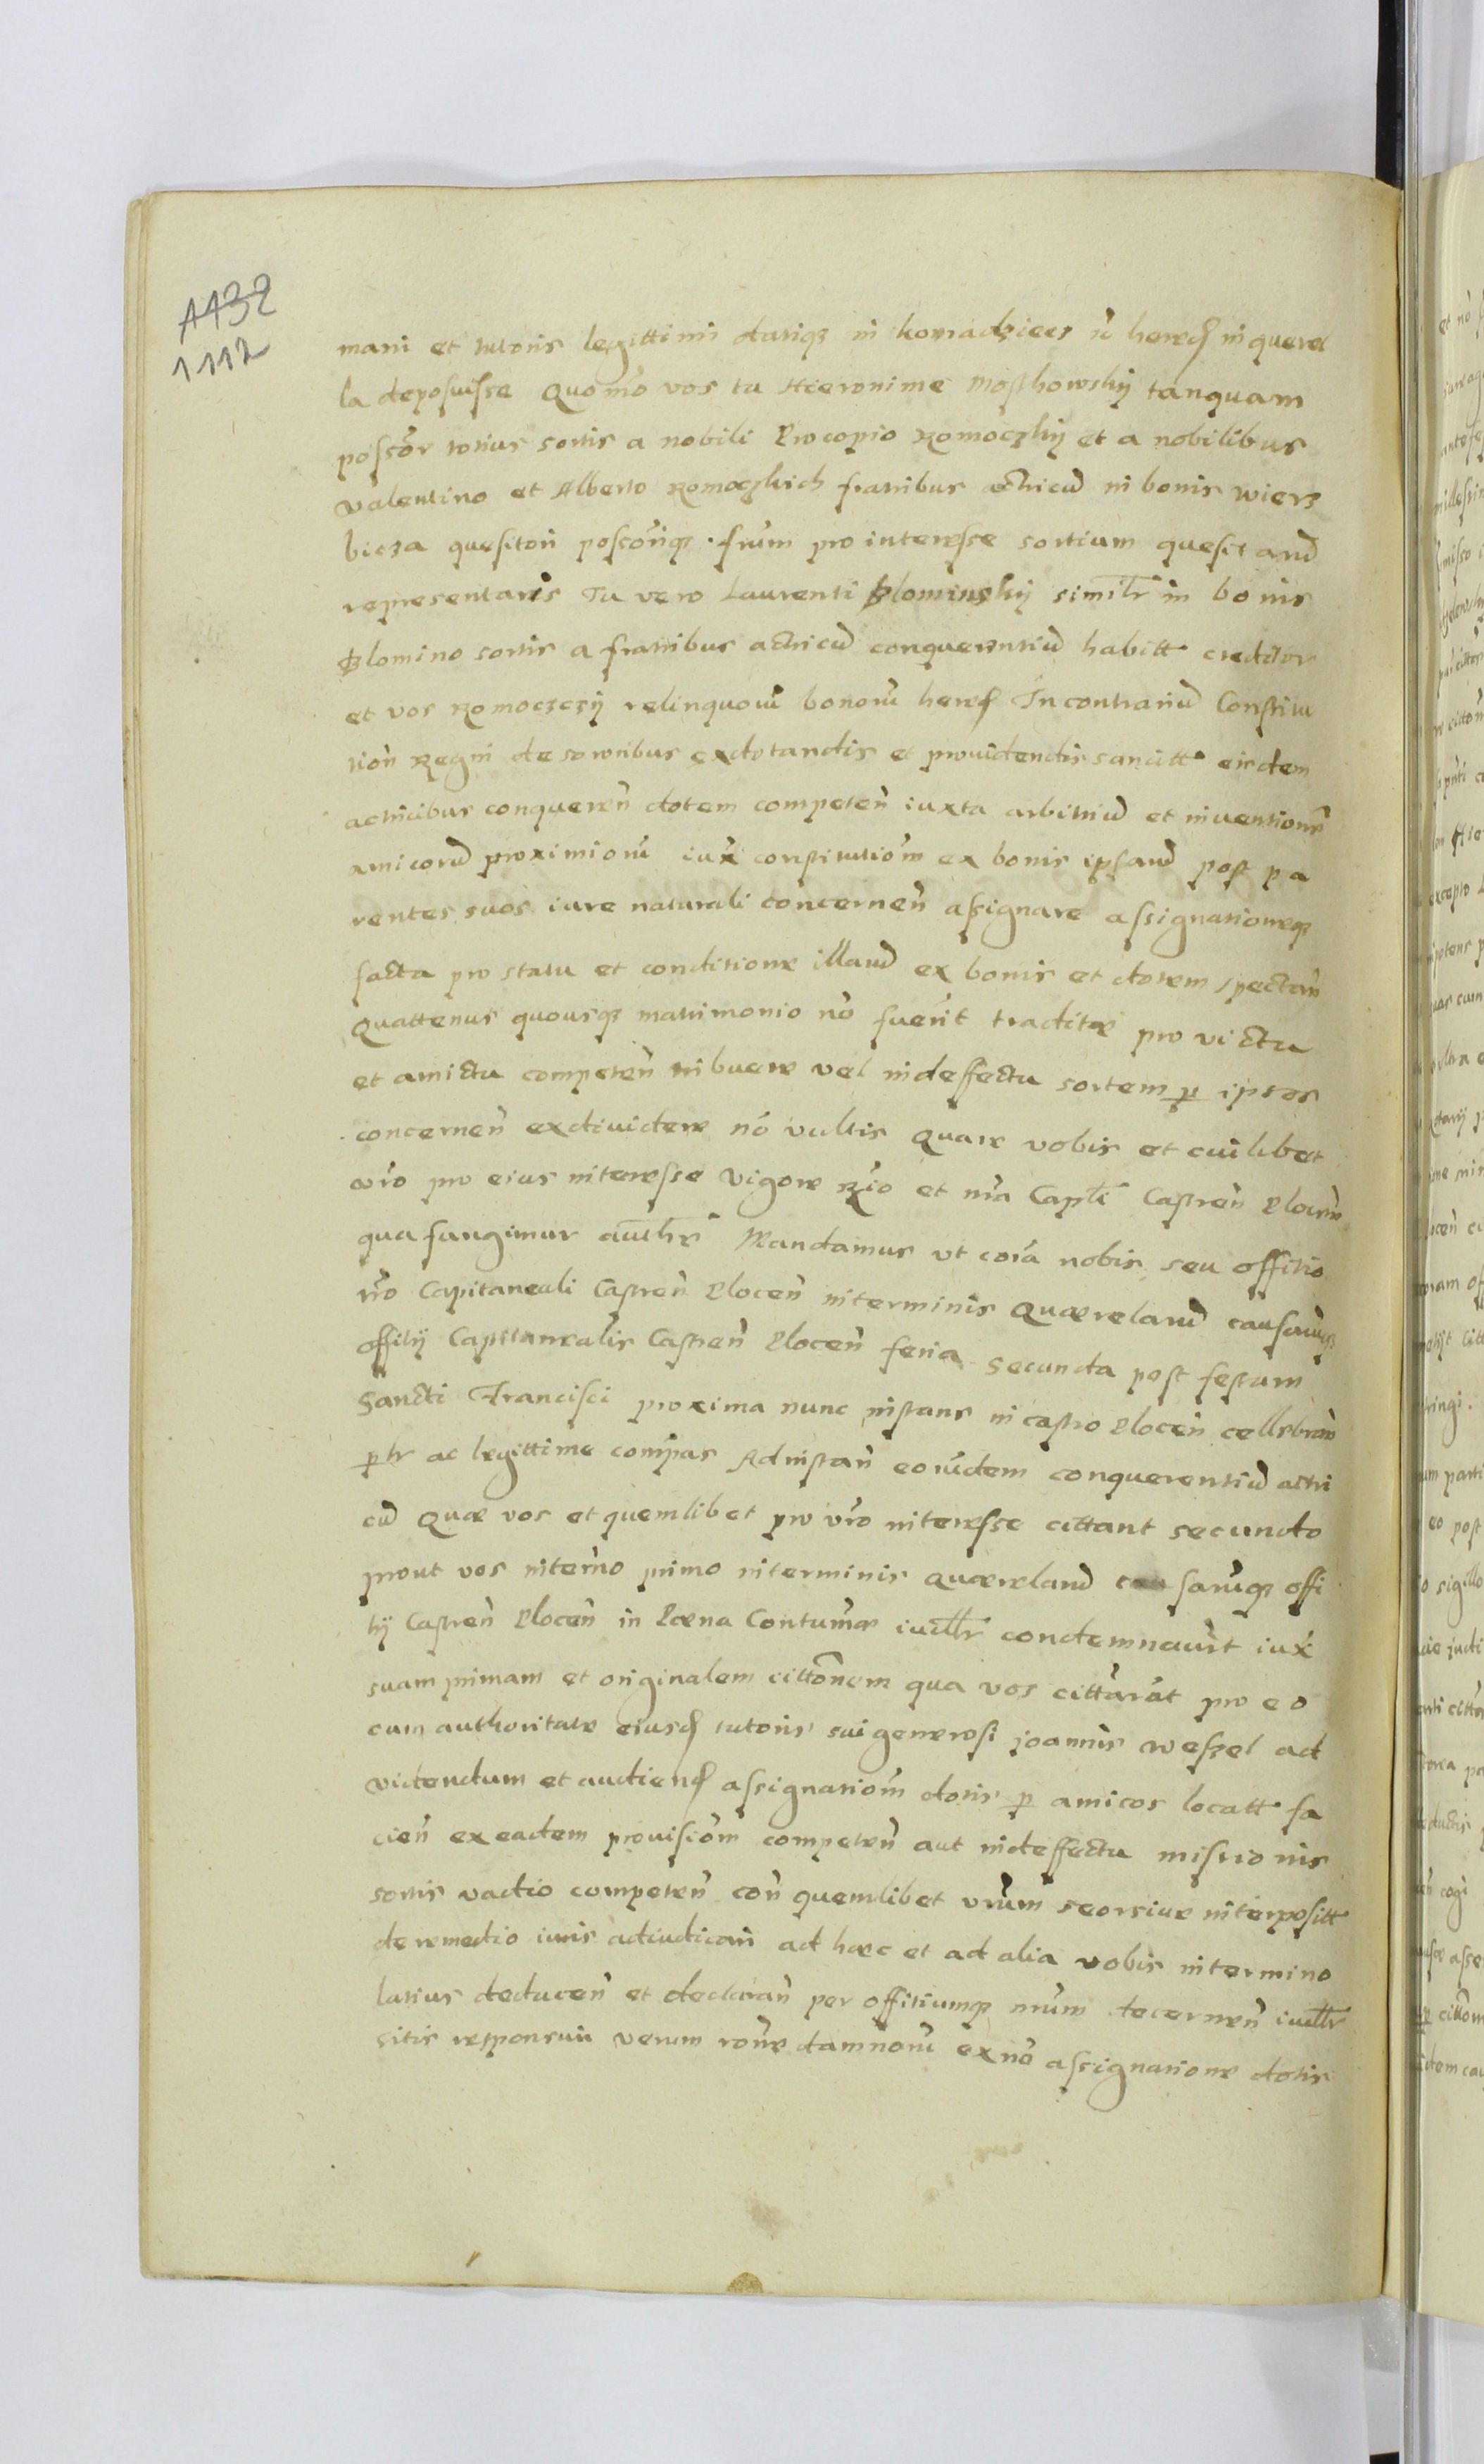 1132
1112
mani et tutoris legittimi datiqz in konradziecz ic hered in querel
la deposuisse Quomo vos tu Hieronime Moskhowskij tanquam
possor totius sortis a nobili Procopio Romoczkij et a nobilibus
Valentino et Alberto Romoczkich fratribus actricu in bonis wierz
bicza quesiton posconqz frum pro interesse sortium quesitaru
representans Tu vero Laurenti Slominskij similr in bonis
Slomino sortis a fratribus actricu conquerentiu habitt creditor
et vos Romoczczij relinquoru bonoru hered In contrariu Constitu
tion Regni de sororibus exdotandis et prouidendis sancitt eisdem
actricibus conqueren dotem competen iuxta arbitriu et inuentione
amicoru proximioru iux constitutiom ex bonis ipsaru post pa
rentes suos iure naturali concernen assignare assignationeqz
facta pro statu et conditione illaru ex bonis et dotem spectan
Quattenus quousqz matrimonio no fuerit traditæ pro victu
et amictu competen tribuere vel in deffectu sortem p ipsos
concernen exdiuidere no vultis Quare vobis et cuilibet
vro pro eius interesse Vigore Rio et nra Capli Castren Plocen
qua fungimur authe Mandamus vt cora nobis seu offitio
nro Capitaneali Castren Plocen in terminis Quærelaru causaruqz
offitij Capitanealis Castren Plocen feria secunda post festum
Sancti Francisci proxima nunc instans in castro Plocen cellebran
ptr ac legittime compas Ad instan eorudem conquerentiu actri
cu Quæ vos et quemlibet pro vro interesse cittant secundo
prout vos in termo primo in terminis Quærelaru causaruqz offi
tij Castren Plocen in Poena Contumæ iudllr condemnauit iux
suam primam et originalem cittonem qua vos cittarat pro eo
cum authoritate eiusd tutoris sui generosi joannis wessel ad
videndum et audiend assignatiom dotis p amicos locatt fa
cien ex eadem prouisiom competen aut in deffectu missionis
sortis vadio competen con quemlibet vrum seorsiue interpositt
de remedio iuris adiudicari ad hæc et ad alia vobis in termino
latius deducen et declaran per offitiumqz nrum decernen iudllr
sitis responsuri verum rone damnoru ex no assignatione dotis